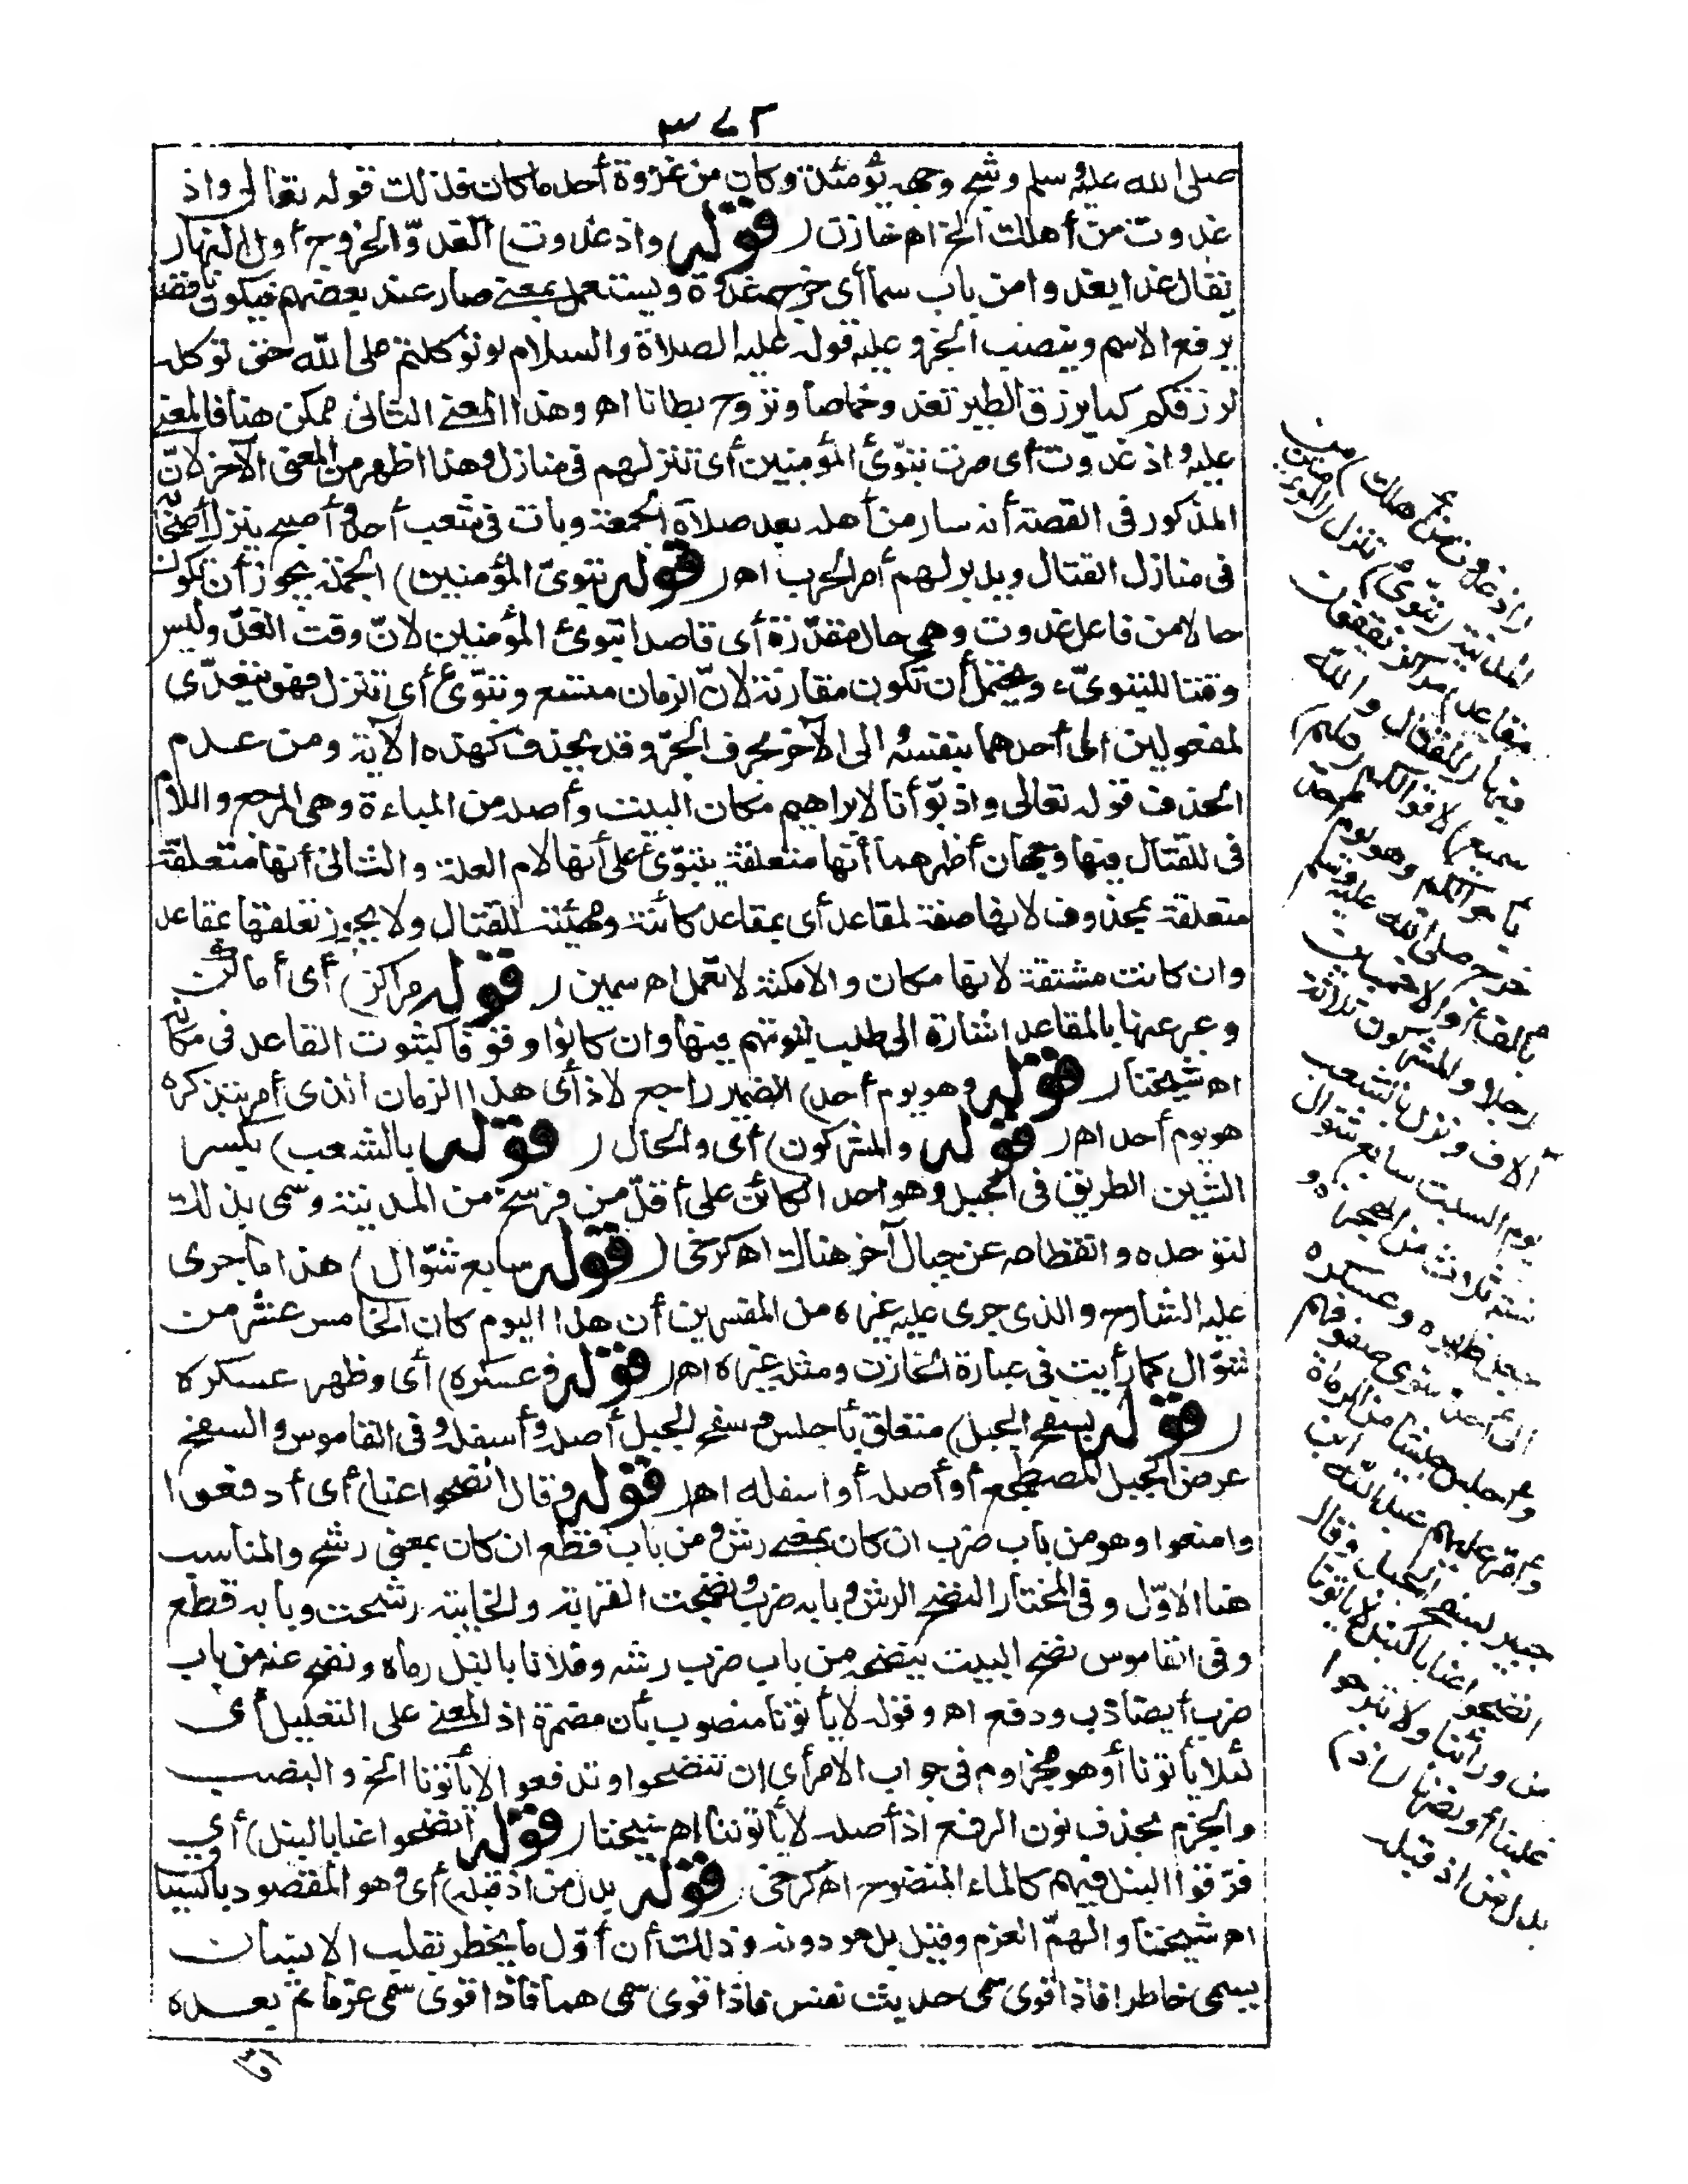 ٣٧٢
صلى الله عليه وسلم وشج وجهه يومئذ وكان من غزوة أحد ما كان فذلك قوله تعالى واذ
غدوت من أهلك الخ اه خازن ( قوله واذ غدوت) الغدوّ الخروج أول النهار
يقال غدا يغدو امن باب سما أى خرج غدوة ويستعمل بمعنى صار عند بعضهم فيكون ناقصا
يرفع الاسم وينصب الخبر وعليه قوله عليه الصلاة والسلام لو توكلتم على الله حق توكله
لرزقكم كما يرزق الطير تغدو خماصا وتروح بطانا اه وهذا المعنى الثانى ممكن هنا فالمعنى
عليه واذ غدوت أى صرت تبوّئ المؤمنين أى تنزلهم فى منازل وهذا اظهر من المعنى الآخر لانّ
المذكور فى القصة أنه سار من أهله بعد صلاة الجمعة وبات فى شعب أحد وأصبح ينزل أصحابه
فى منازل القتال ويدبر لهم أمر الحرب اه ( قوله تبوّئ المؤمنين) الجملة يجوز أن تكون
حالا من فاعل غدوت وهى حال مقدّرة أى قاصدا تبوئ المؤمنين لانّ وقت الغدوّ وليس
وقتا للتبوىء ويحتمل أن تكون مقارنة لانّ الزمان متسع وتبوّئ أى تنزل فهو يتعدّى
لمفعولين الى أحدهما بنفسه الى الآخر بحرف الجرّ وقد يحذف كهذه الآية ومن عدم
الحذف قوله تعالى واذ بوّأنا لابراهيم مكان البيت وأصله من المباءة وهى المرجع واللام
فى للقتال فيها وجهان أظهرهما أنها متعلقة بتبوّئ على أنها لام العلة والثانى أنها متعلقة
متعلقة بمحذوف لانها صفة لمقاعد أى بمقاعد كائنة ومهيئة للقتال ولا يجوز تعلقها بمقاعد
وان كانت مشتقة لانها مكان والامكنة لا تعمل اه سمين ( قوله مراكز) أى أماكن
وعبر عنها بالمقاعد اشارة الى طلب ثبوتهم فيها وان كانوا وقوفا كثبوت القاعد فى مكانه
اه شيخنا ( قوله وهو يوم أحد) الضمير راجع لاذ أى هذا الزمان الذى أمر بتذكره
هو يوم أحد اه ( قوله والمشركون) أى والحال ( قوله بالشعب) بكسر
الشين الطريق فى الجبل وهو احد الكائن على أقلّ من فرسخ من المدينة وسمى بذلك
لتوحده وانقطاعه عن جبال آخر هناك اه كرخى ( قوله سابع شوّال) هذا ما جرى
عليه الشارح والذى جرى عليه غيره من المفسرين أن هذا اليوم كان الخامس عشر من
شوّال كما رأيت فى عبارة الخازن ومثله غيره اه ( قوله وعسكره) أى وظهر عسكره
( قوله بسفح الجبل) متعلق بأجلس وسفح الجبل أصله وأسفله وفى القاموس والسفح
عرض الجبل المضطجع أو أصله أو اسفله اه ( قوله وقال انضحوا عنا) أى أدفعوا
وامنعوا وهو من باب ضرب ان كان بمعنى رش ومن باب قطع ان كان بمعنى رشح والمناسب
هنا الاوّل وفى المختار النضح الرش وبابه ضرب ونضحت القربة والخابية رشحت وبابه قطع
وفى القاموس نضح البيت ينضحه من باب ضرب رشه وفلانا بالنبل رماه ونضح عنه من باب
ضرب أيضا ذب ودفع اه وقوله لا يأتونا منصوب بأن مضمرة اذ المعنى على التعليل أى
لئلا يأتونا أو هو مجزوم فى جواب الامر أى ان تنضحوا وتدفعوا لا يأتونا الخ والنصب
والجزم بحذف نون الرفع اذ أصله لا يأتوننا اه شيخنا ( قوله انضحوا عنا بالنبل) أى
فرّقوا النبل فيهم كالماء المنضوح اه كرخى ( قوله بدل من اذ قبله) أى وهو المقصود بالسياق
اه شيخنا والهمّ العزم وقيل بل هو دونه وذلك أن أوّل ما يخطر بقلب الانسان
يسمى خاطرا فاذا قوى سمى حديث نفس فاذا قوى سمى هما فاذا قوى سمى عزما ثم بعده
(و) اذ غدوت من أهلك) من
المدينة (تبوّئ) تنزل (المؤمنين
مقاعد) مراكز يقفون
فيها (للقتال والله
سميع) لاقوالكم (عليم)
بأحوالكم وهو يوم أحد
خرج صلى الله عليه وسلم
بألف أو الا خمسين
رجلا والمشركون ثلاثة
آلاف ونزل بالشعب
يوم السبت سابع شوال
سنة ثلاث من الهجرة و
جعل ظهره وعسكره
الى أحد وسوى صفوفهم
وأجلس جيشا من الرماة
وأمّر عليهم عبد الله ابن
جبير بسفح الجبل وقال
انضحوا عنا بالنبل لا يأتونا
من ورائنا ولا تبرحوا
غلبنا أو نصرنا (اذ)
بدل من اذ قبله